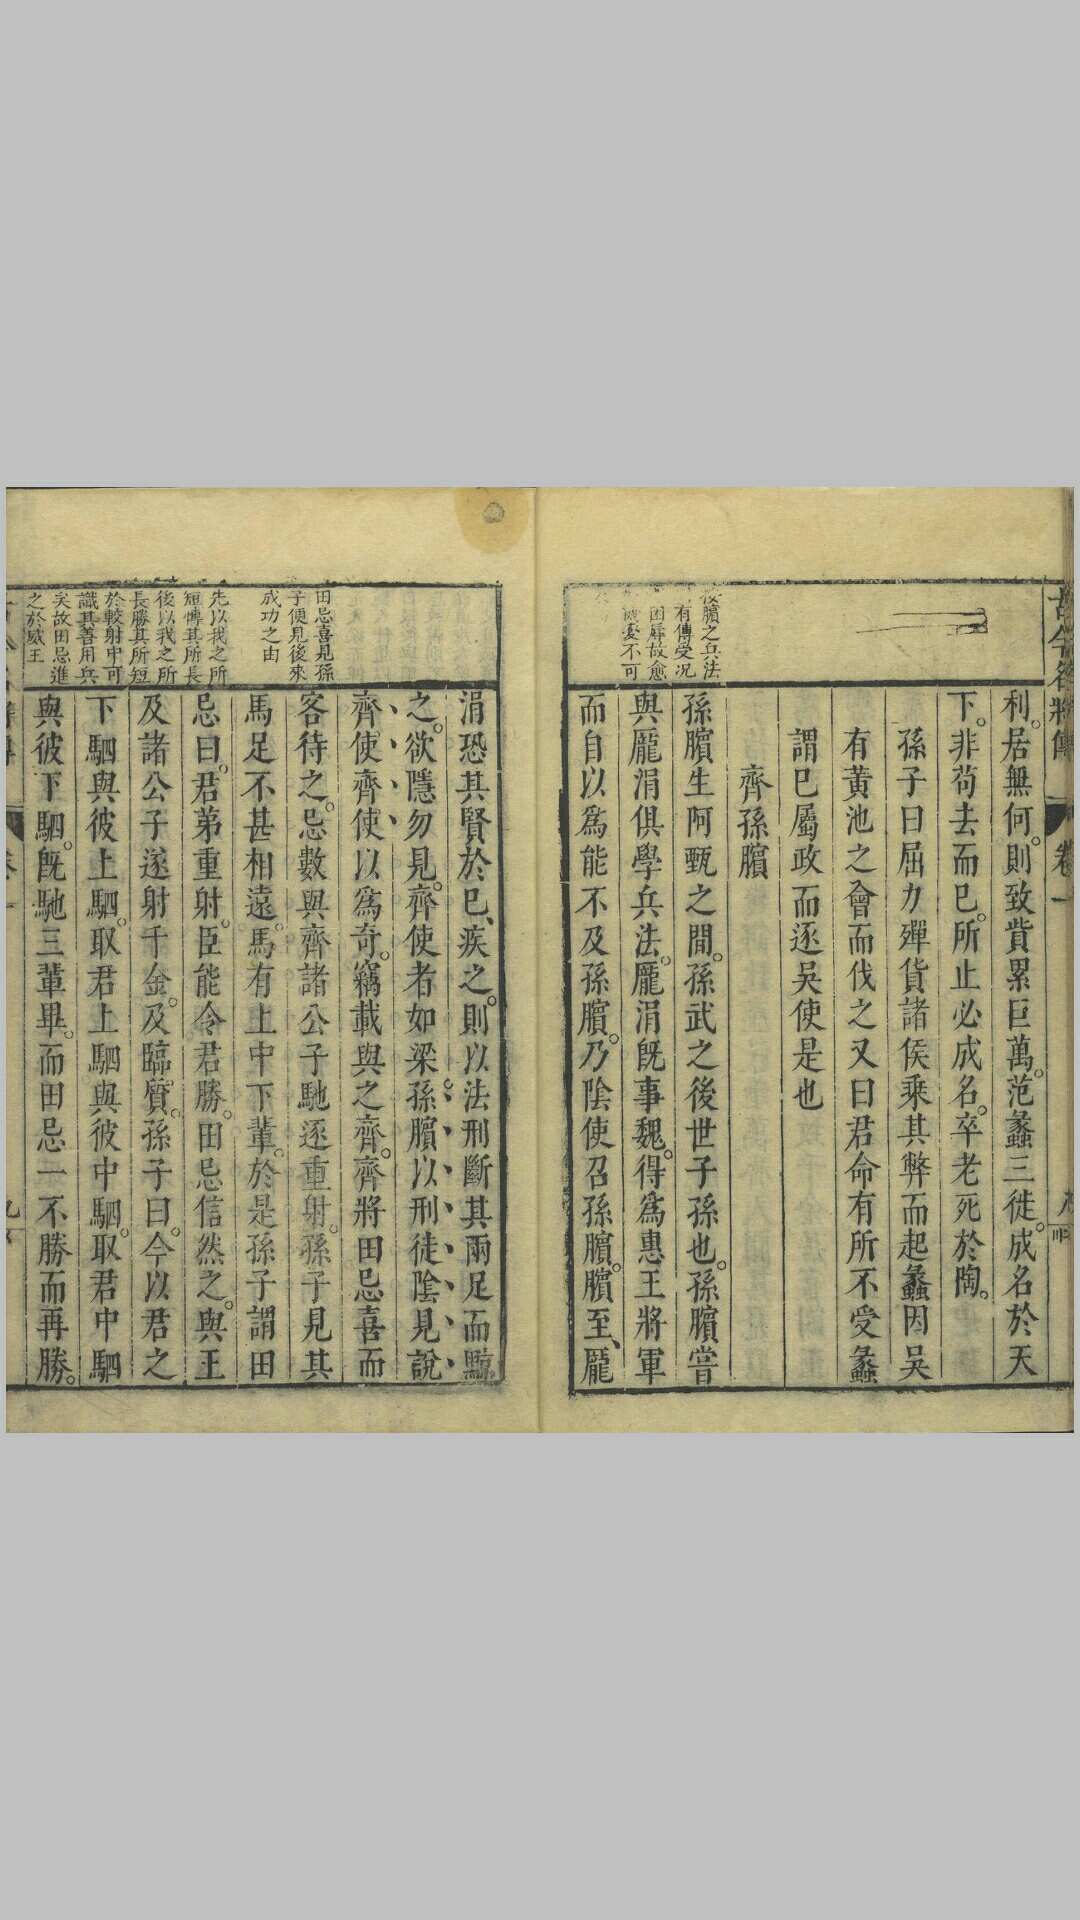 古今名將傳
卷一
利。居無何。則致貲累巨萬。范蠡三徙。成名於天
下。非苟去而已。所止必成名。卒老死於陶。
孫子曰屈力殫貨諸侯乘其弊而起蠡因吳
有黃池之會而伐之又曰君命有所不受蠡
謂已屬政而逐吳使是也
齊孫臏
孫臏生阿甄之間。孫武之後世子孫也。孫臏嘗
與龐涓俱學兵法。龐涓旣事魏。得爲惠王將軍
而自以爲能不及孫臏。乃陰使召孫臏。臏至、龐
臏之兵法
有傳受况
困辱故愈
憂不可
涓恐其賢於已、疾之。則以法刑斷其兩足而黥
之。欲隱勿見。齊使者如梁。孫臏以刑徒陰見說
齊使。齊使以爲奇。竊載與之齊。齊將田忌喜而
客待之。忌數與齊諸公子馳逐重射。孫子見其
馬足不甚相遠。馬有上中下輩。於是孫子謂田
忌曰。君弟重射。臣能令君勝。田忌信然之。與王
及諸公子逐射千金。及臨質。孫子曰。今以君之
下駟與彼上駟。取君上駟與彼中駟。取君中駟
與彼下駟。旣馳三輩畢。而田忌一不勝而再勝。
田忌喜見孫
子便見後來
成功之由
先以我之所
短博其所長
後以我之所
長勝其所短
於較射中可
識其善用兵
矣故田忌進
之於威王